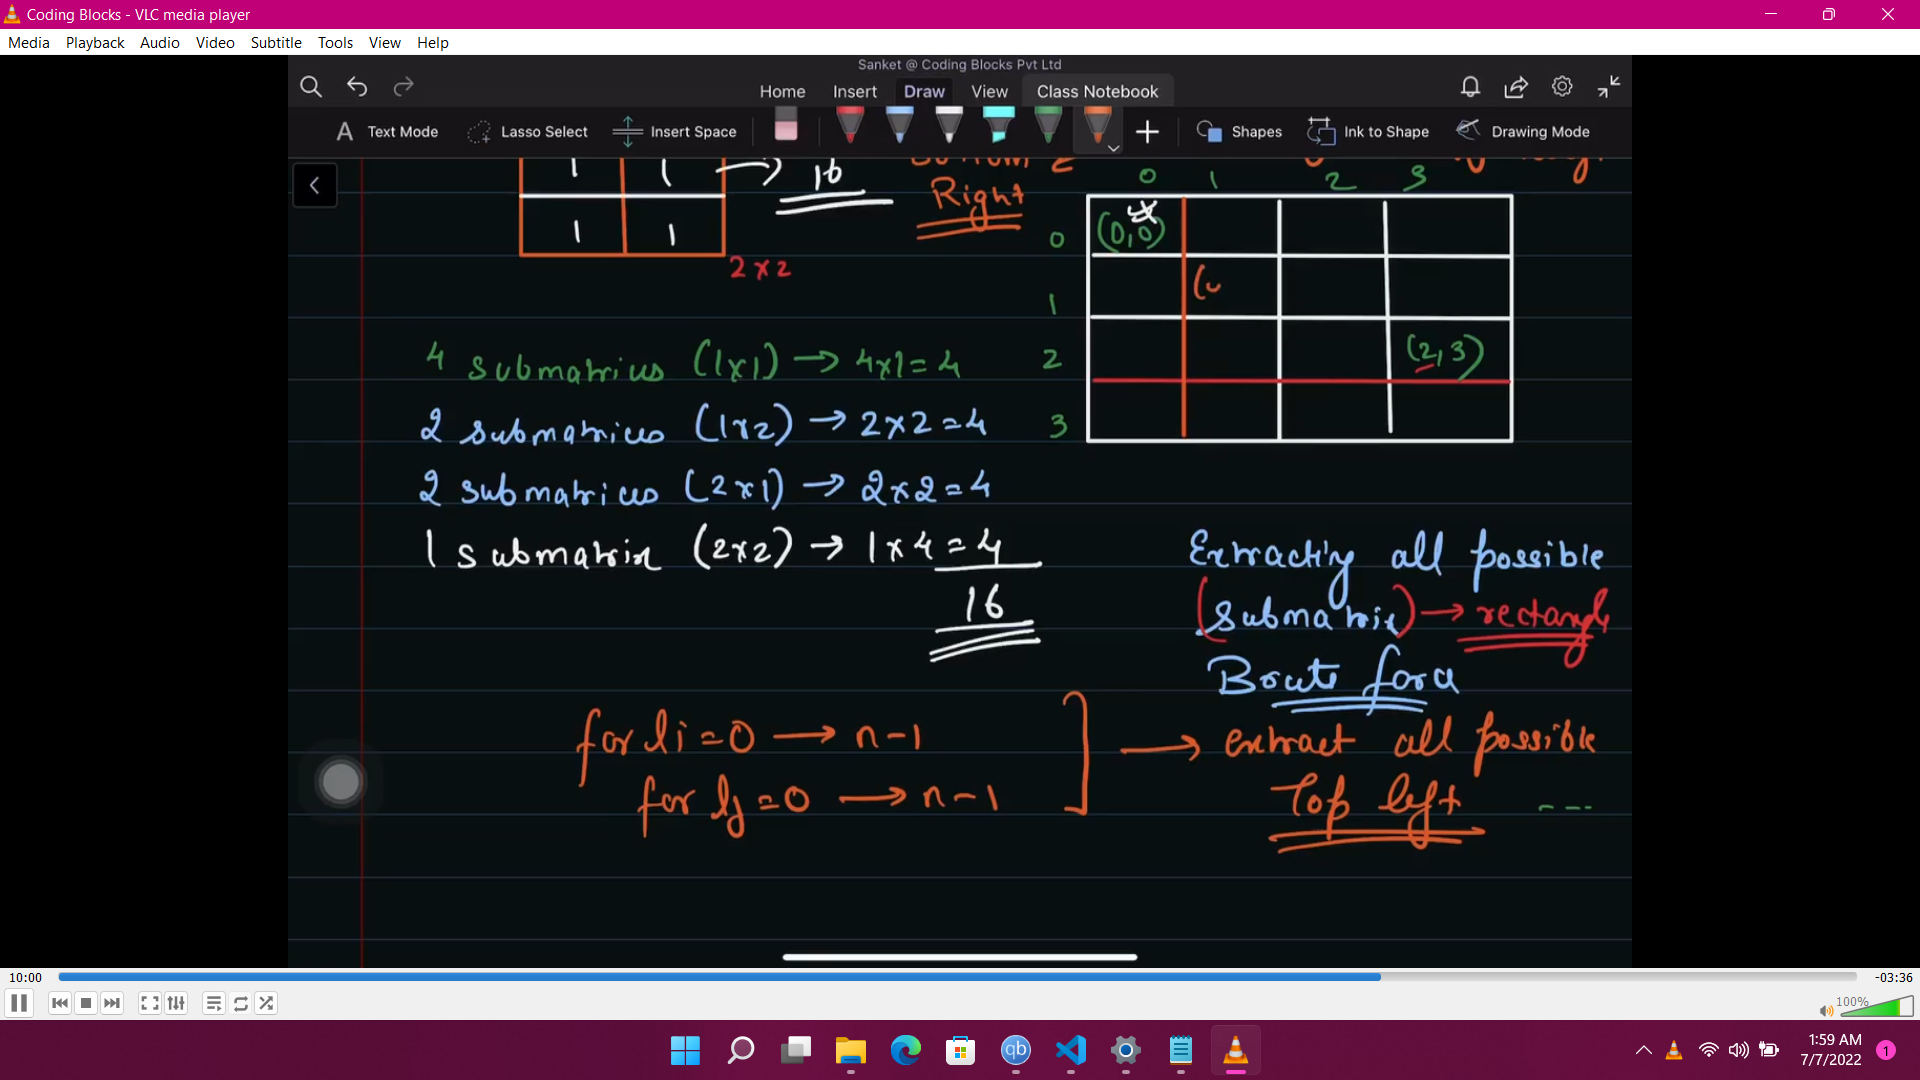 Coding Blocks - VLC media player
Media Playback Audio Video Subtitle Tools View Help
Sanket @ Coding Blocks Pvt Ltd
Home Insert Draw View Class Notebook
Text Mode Lasso Select Insert Space Shapes Ink to Shape Drawing Mode
1 1 → 16
Right
1 1
2x2
0 1 2 3
0 (0,0)
1
2 (2,3)
3
4 submatrices (1x1) → 4x1=4
2 submatrices (1x2) → 2x2=4
2 submatrices (2x1) → 2x2=4
1 submatrix (2x2) → 1x4=4
16
Extracting all possible
(submatrix) → rectangle
Brute force
for li=0 → n-1
for lj=0 → n-1
→ extract all possible
Top left ----
10:00
-03:36
100%
1:59 AM
7/7/2022
1